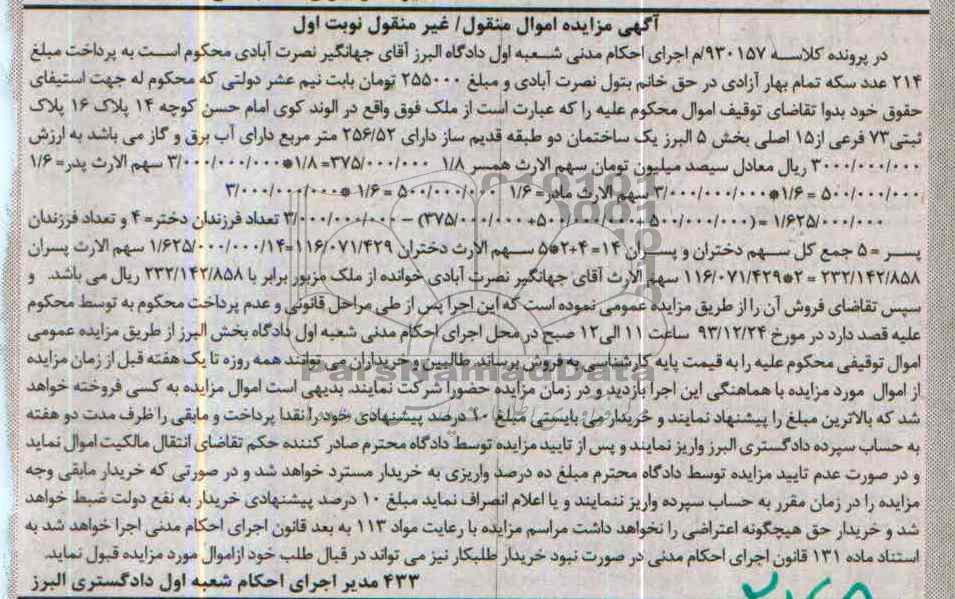 آگهی مزایده اموال منقول/ غیر منقول نوبت اول
در پرونده کلاسه ۹۳۰۱۵۷/م اجرای احکام مدنی شعبه اول دادگاه البرز آقای جهانگیر نصرت آبادی محکوم است به پرداخت مبلغ
۲۱۴ عدد سکه تمام بهار آزادی در حق خانم بتول نصرت آبادی و مبلغ ۲۵۵۰۰۰ تومان بابت نیم عشر دولتی که محکوم له جهت استیفای
حقوق خود بدوا تقاضای توقیف اموال محکوم علیه را که عبارت است از ملک فوق واقع در الوند کوی امام حسن کوچه ۱۴ پلاک ۱۶ پلاک
ثبتی ۷۳ فرعی از ۱۵ اصلی بخش ۵ البرز یک ساختمان دو طبقه قدیم ساز دارای ۲۵۶/۵۲ متر مربع دارای آب برق و گاز می باشد به ارزش
۳۰۰۰/۰۰۰/۰۰۰ ریال معادل سیصد میلیون تومان سهم الارث همسر ۱/۸ ۳۷۵/۰۰۰/۰۰۰=۱/۸*۳/۰۰۰/۰۰۰/۰۰۰ سهم الارث پدر= ۱/۶
۵۰۰/۰۰۰/۰۰۰ = ۱/۶*۳/۰۰۰/۰۰۰/۰۰۰ سهم الارث مادر= ۱/۶ ۵۰۰/۰۰۰/۰۰۰ = ۱/۶ *۳/۰۰۰/۰۰۰/۰۰۰
۱/۶۲۵/۰۰۰/۰۰۰ =(۵۰۰/۰۰۰/۰۰۰+۵۰۰/۰۰۰/۰۰۰+۳۷۵/۰۰۰/۰۰۰) – ۳/۰۰۰/۰۰۰/۰۰۰ تعداد فرزندان دختر= ۴ و تعداد فرزندان
پسر = ۵ جمع کل سهم دختران و پسران ۱۴=۴+۲*۵ سهم الارث دختران ۱۱۶/۰۷۱/۴۲۹=۱/۶۲۵/۰۰۰/۰۰۰/۱۴ سهم الارث پسران
۲۳۲/۱۴۲/۸۵۸ = ۲*۱۱۶/۰۷۱/۴۲۹ سهم الارث آقای جهانگیر نصرت آبادی خوانده از ملک مزبور برابر با ۲۳۲/۱۴۲/۸۵۸ ریال می باشد. و
سپس تقاضای فروش آن را از طریق مزایده عمومی نموده است که این اجرا پس از طی مراحل قانونی و عدم پرداخت محکوم به توسط محکوم
علیه قصد دارد در مورخ ۹۳/۱۲/۲۴ ساعت ۱۱ الی ۱۲ صبح در محل اجرای احکام مدنی شعبه اول دادگاه بخش البرز از طریق مزایده عمومی
اموال توقیفی محکوم علیه را به قیمت پایه کارشناسی به فروش برساند. طالبین و خریداران می توانند همه روزه تا یک هفته قبل از زمان مزایده
از اموال مورد مزایده با هماهنگی این اجرا بازدید و در زمان مزایده حضورا شرکت نمایند. بدیهی است اموال مزایده به کسی فروخته خواهد
شد که بالاترین مبلغ را پیشنهاد نمایند و خریدار می بایستی مبلغ ۱۰ درصد پیشنهادی خود را نقدا پرداخت و مابقی را ظرف مدت دو هفته
به حساب سپرده دادگستری البرز واریز نمایند و پس از تایید مزایده توسط دادگاه محترم صادر کننده حکم تقاضای انتقال مالکیت اموال نماید
و در صورت عدم تایید مزایده توسط دادگاه محترم مبلغ ده درصد واریزی به خریدار مسترد خواهد شد و در صورتی که خریدار مابقی وجه
مزایده را در زمان مقرر به حساب سپرده واریز ننمایند و یا اعلام انصراف نماید مبلغ ۱۰ درصد پیشنهادی خریدار به نفع دولت ضبط خواهد
شد و خریدار حق هیچگونه اعتراضی را نخواهد داشت مراسم مزایده با رعایت مواد ۱۱۳ به بعد قانون اجرای احکام مدنی اجرا خواهد شد به
استناد ماده ۱۳۱ قانون اجرای احکام مدنی در صورت نبود خریدار طلبکار نیز می تواند در قبال طلب خود از اموال مورد مزایده قبول نماید.
۴۳۳ مدیر اجرای احکام شعبه اول دادگستری البرز
ParsNamadData